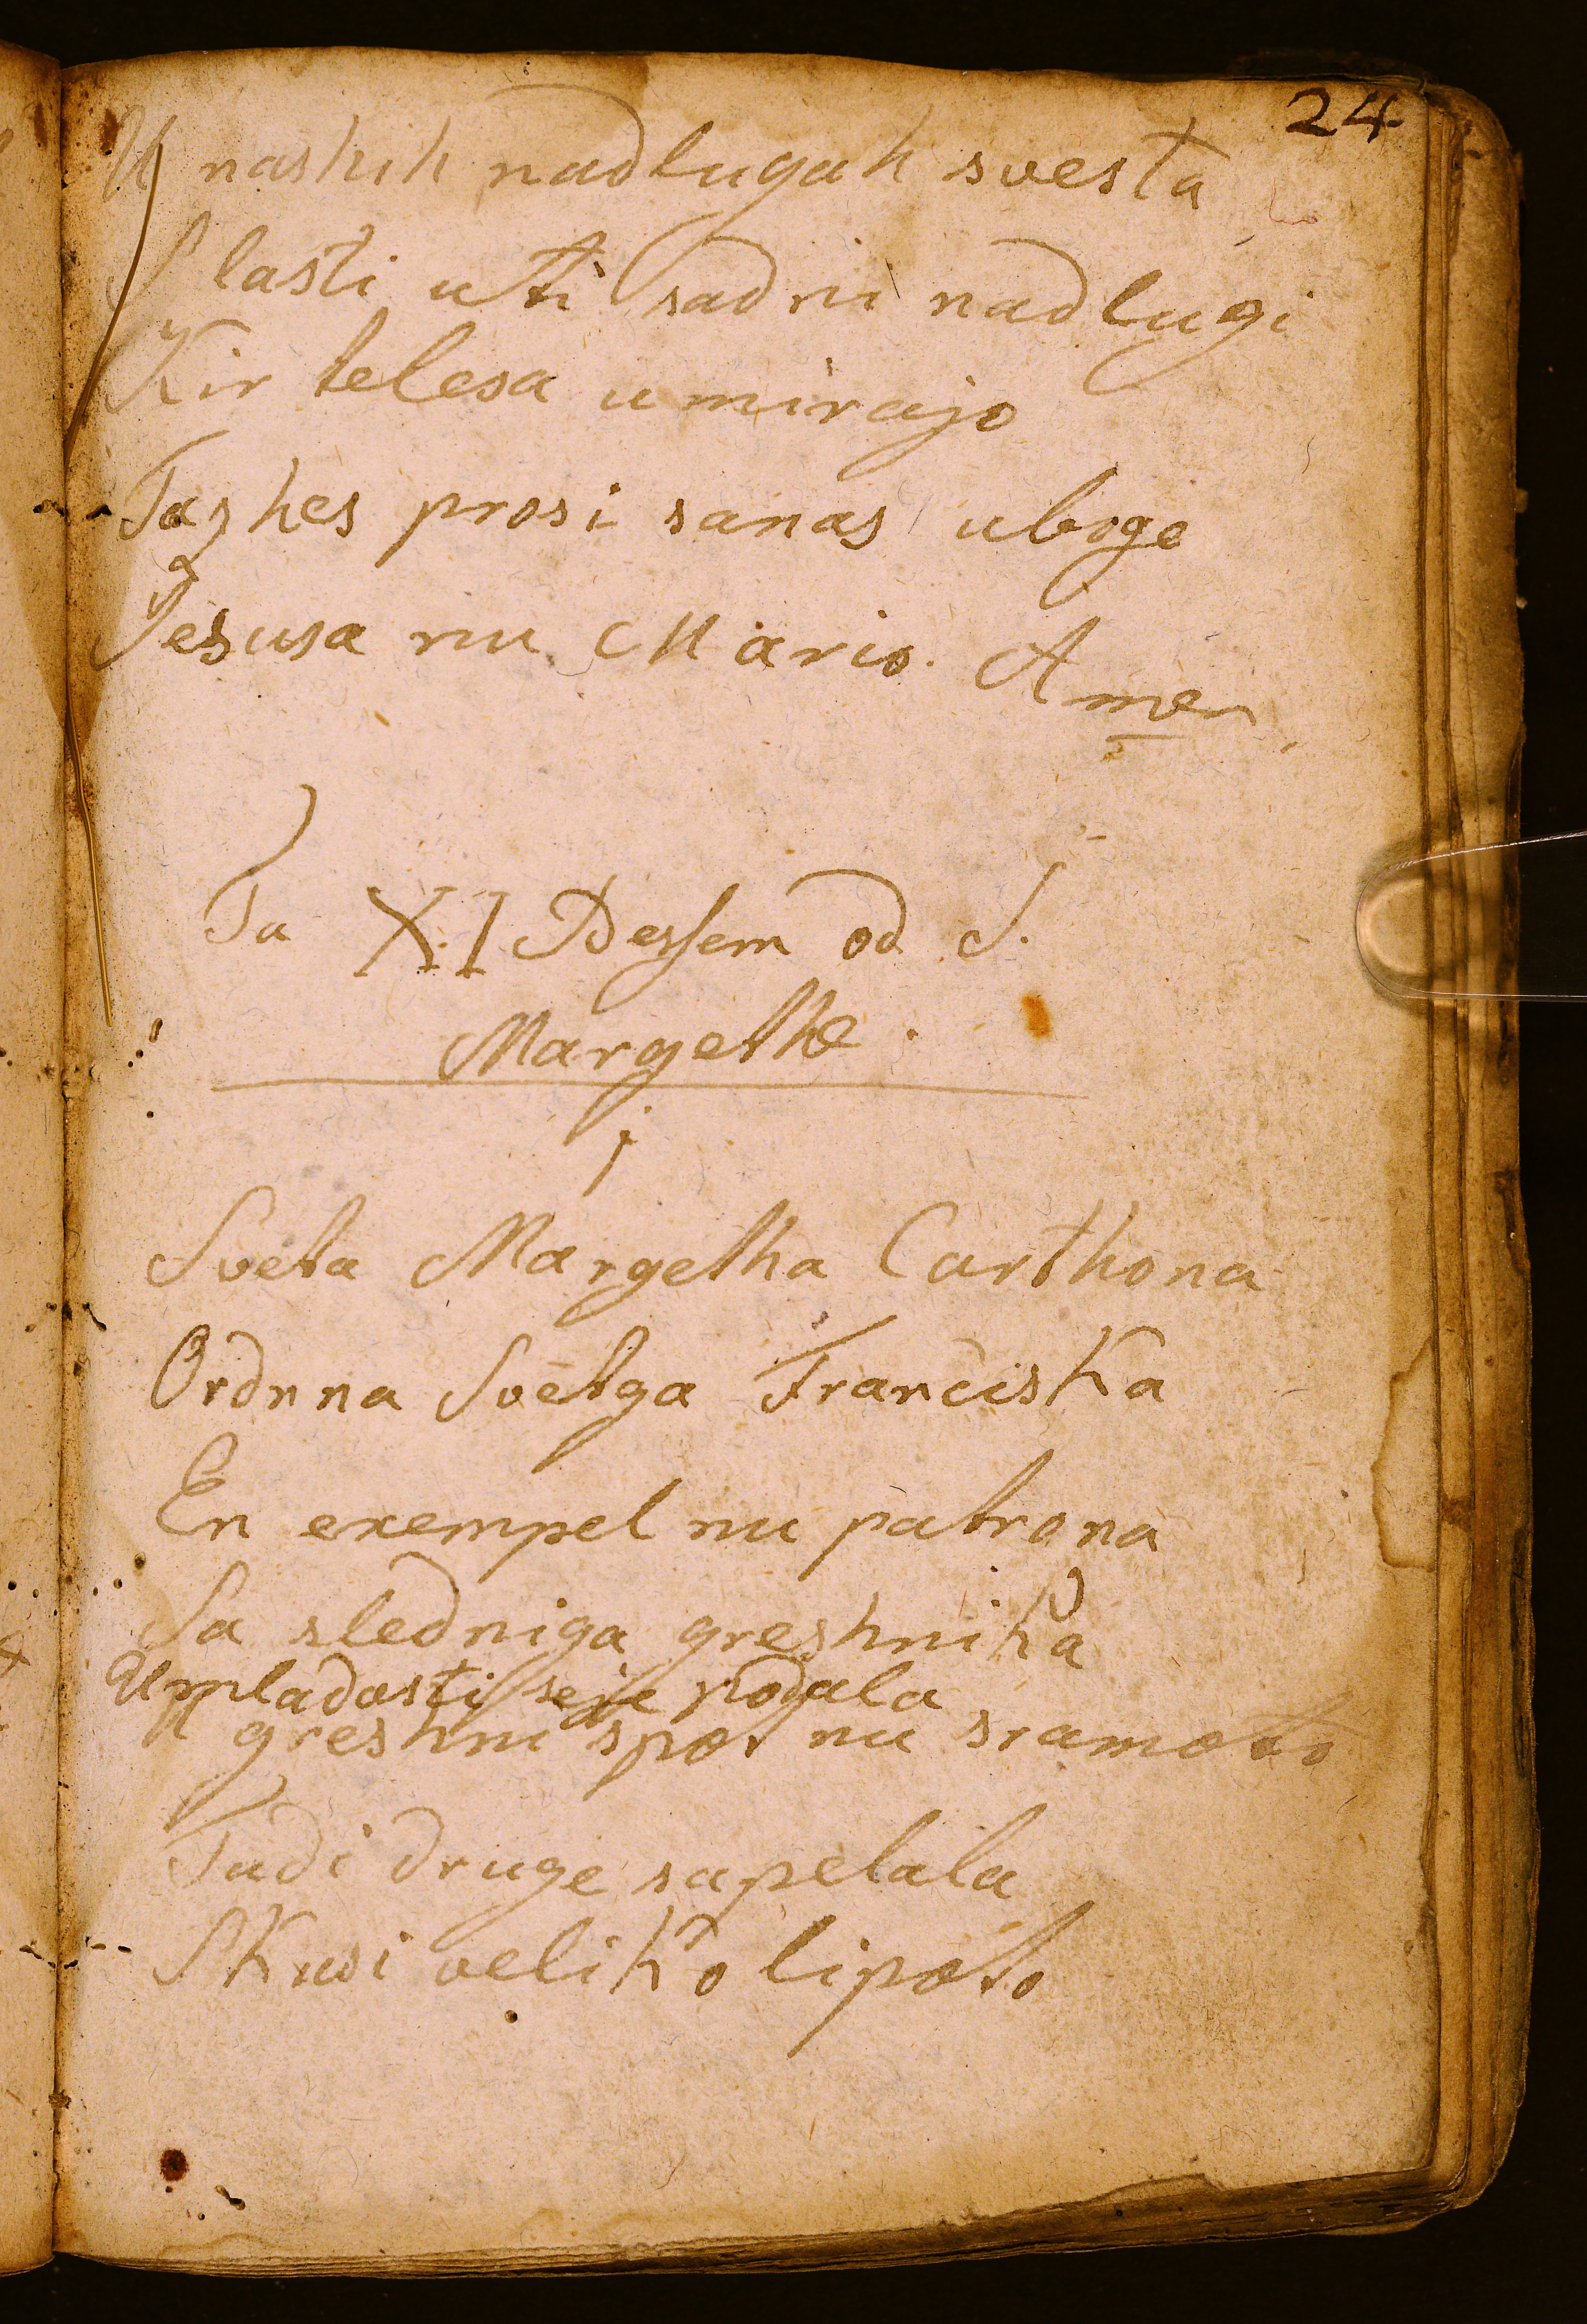 24
U nashih nadlugah svesta
Slasti uti sadni nadlugi
Kir telesa umirajo
Tashes prosi sanas uboge
Jesusa nu Mario. Amen
Ta XI Pessem od S.
Margethe.
j
Sveta Margetha Carthona
Ordnna Svetga Franciska
En exempel nu patrona
Sa sledniga greshnika
Umladosti seje podala
U greshni spot nu sramoto
Tudi druge sapelala
Skusi veliko lipoto